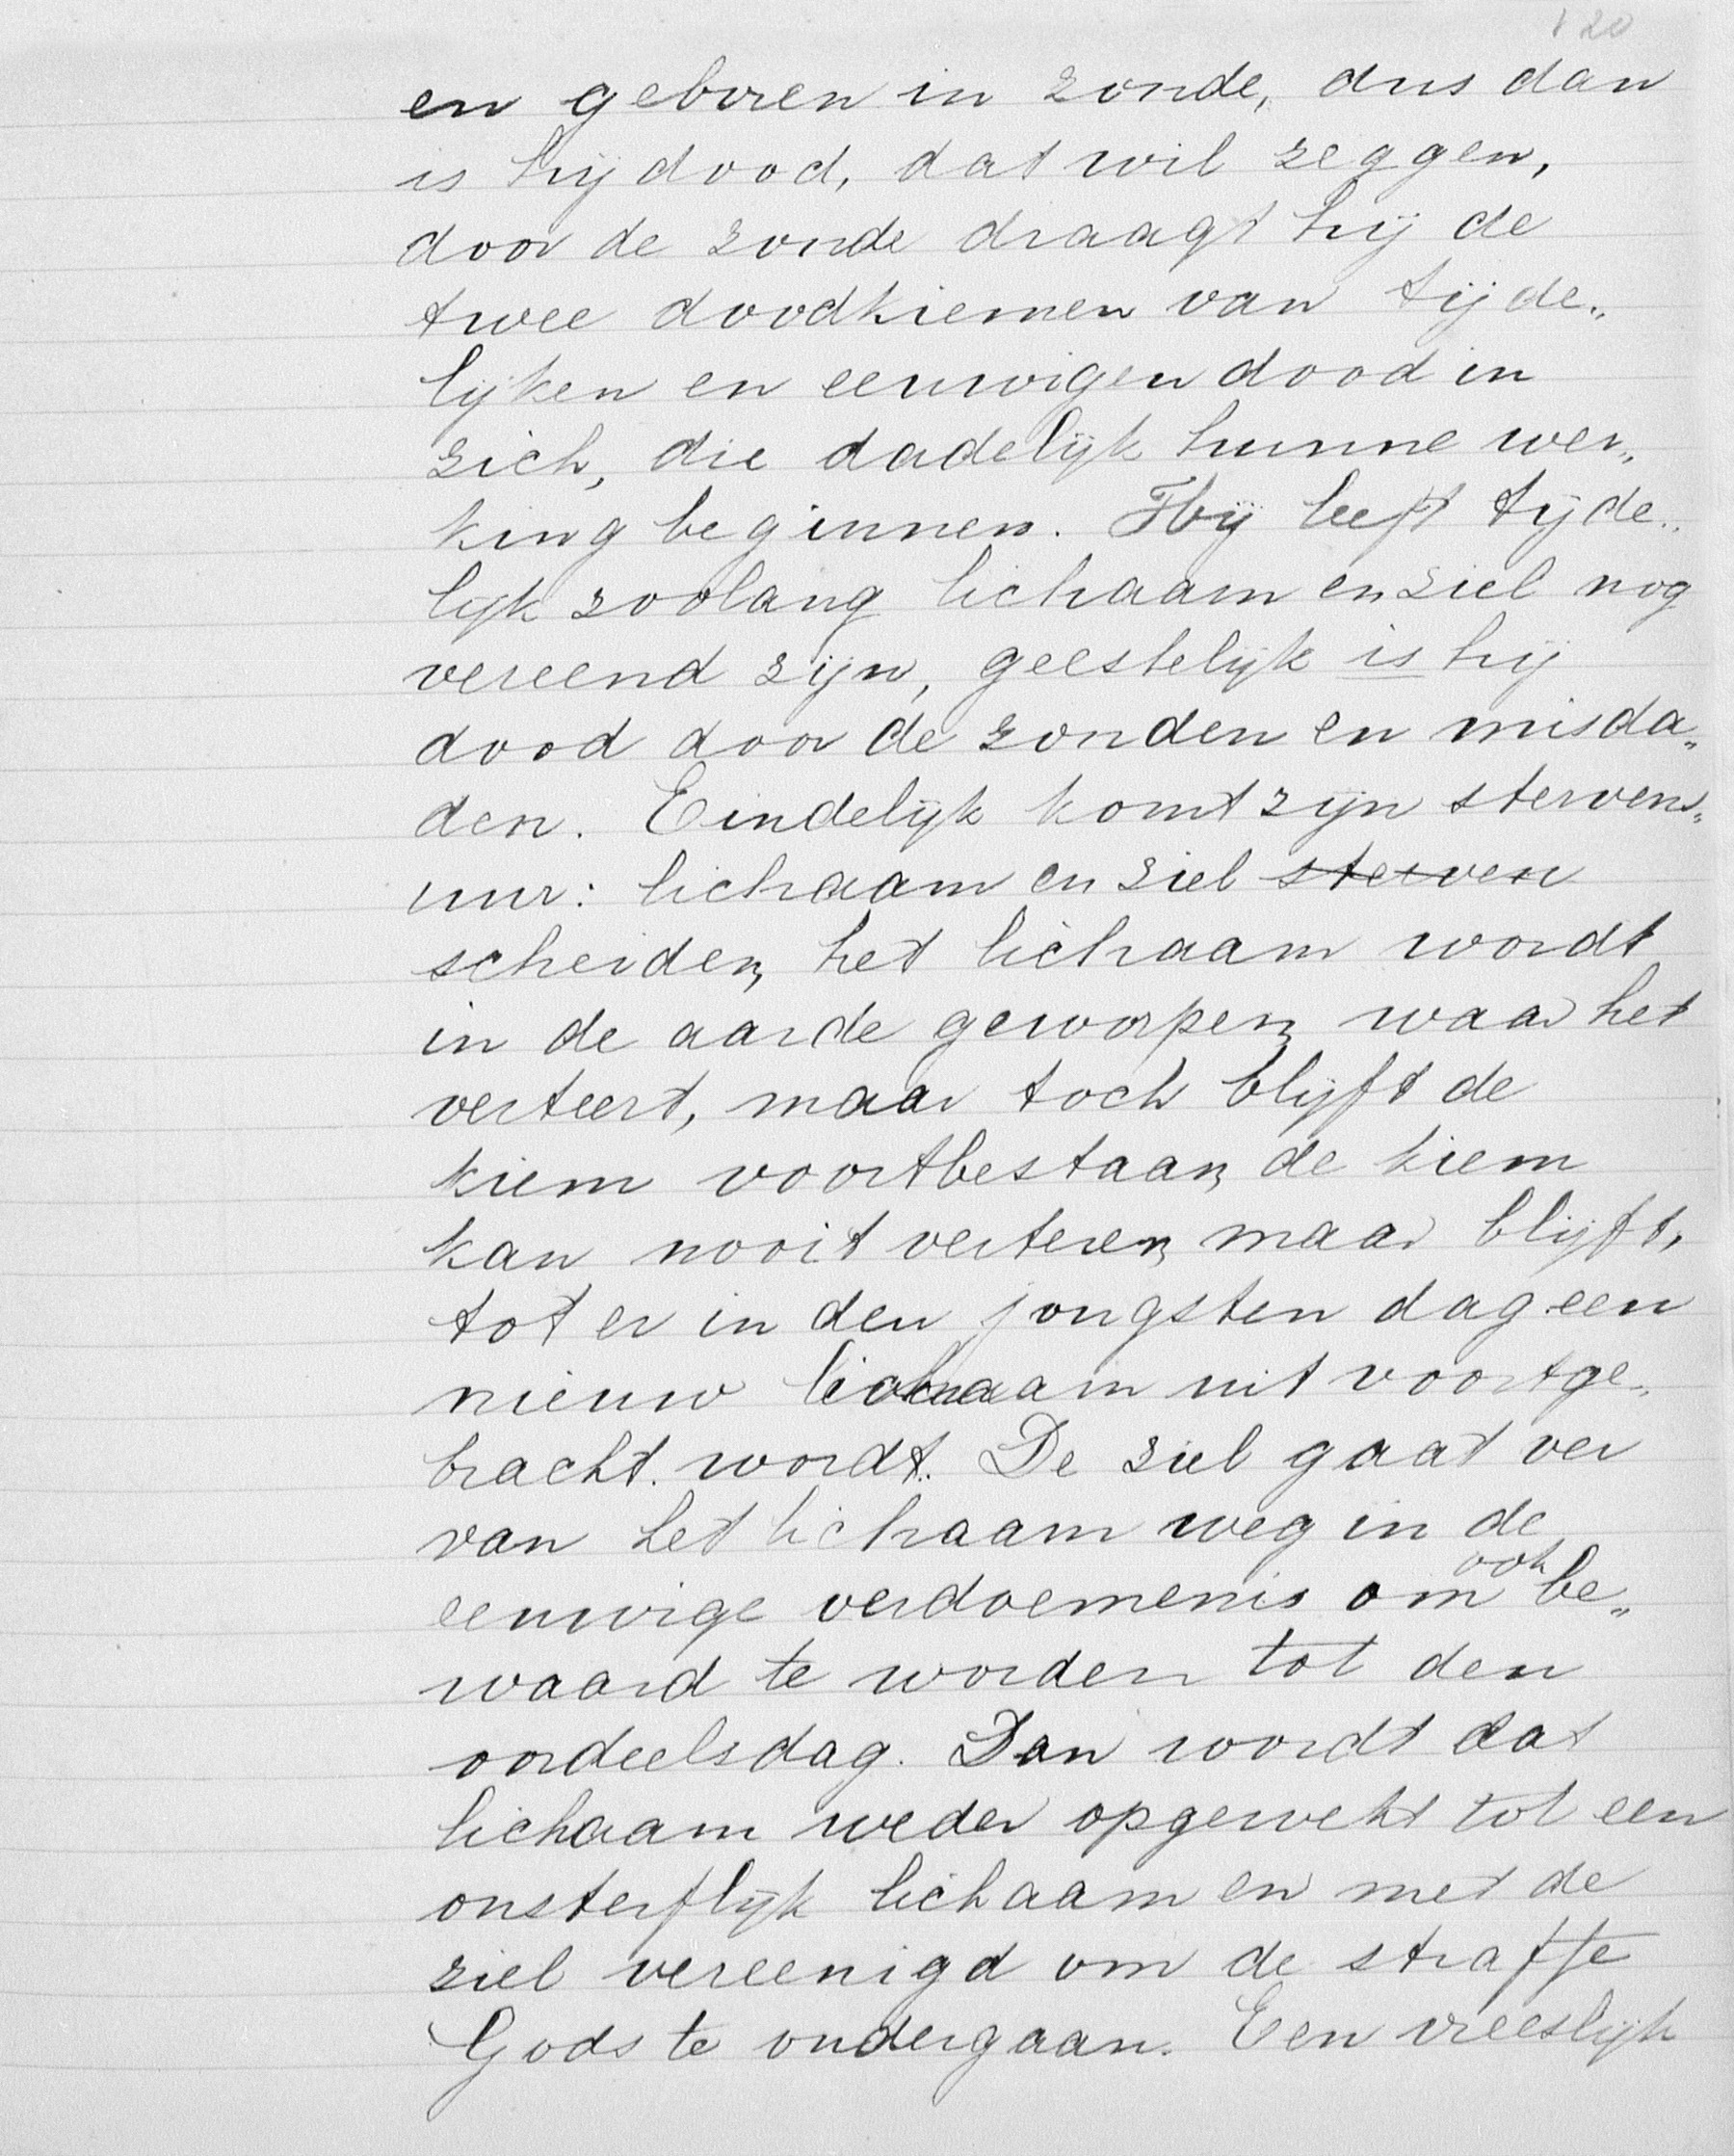 120
en geboren in zonde, dus dan
is hij dood, dat wil zeggen,
door de zonde draagt hij de
twee doodkiemen van tijde„
lijken en eeuwigen dood in
zich, die dadelijk hunne wer„
king beginnen. Hij leeft tijde„
lijk zoolang lichaam en ziel nog
vereend zijn, geestelijk is hij
dood door de zonden en misda„
den. Eindelijk komt zijn stervens„
uur: lichaam en ziel sterven
scheiden, het lichaam wordt
in de aarde geworpen, waar het
verteert, maar toch blijft de
kiem voortbestaan, de kiem
kan nooit verteren, maar blijft,
tot er in den jongsten dag een
nieuw lichaam uit voortge„
bracht wordt. De ziel gaat ver
van het lichaam weg in de
eeuwige verdoemenis om ook be„
waard te worden tot den
oordeelsdag. Dan wordt dat
lichaam weder opgewekt tot een
onsterflijk lichaam en met de
ziel vereenigd om de straffe
Gods te ondergaan. Een vreeslijk